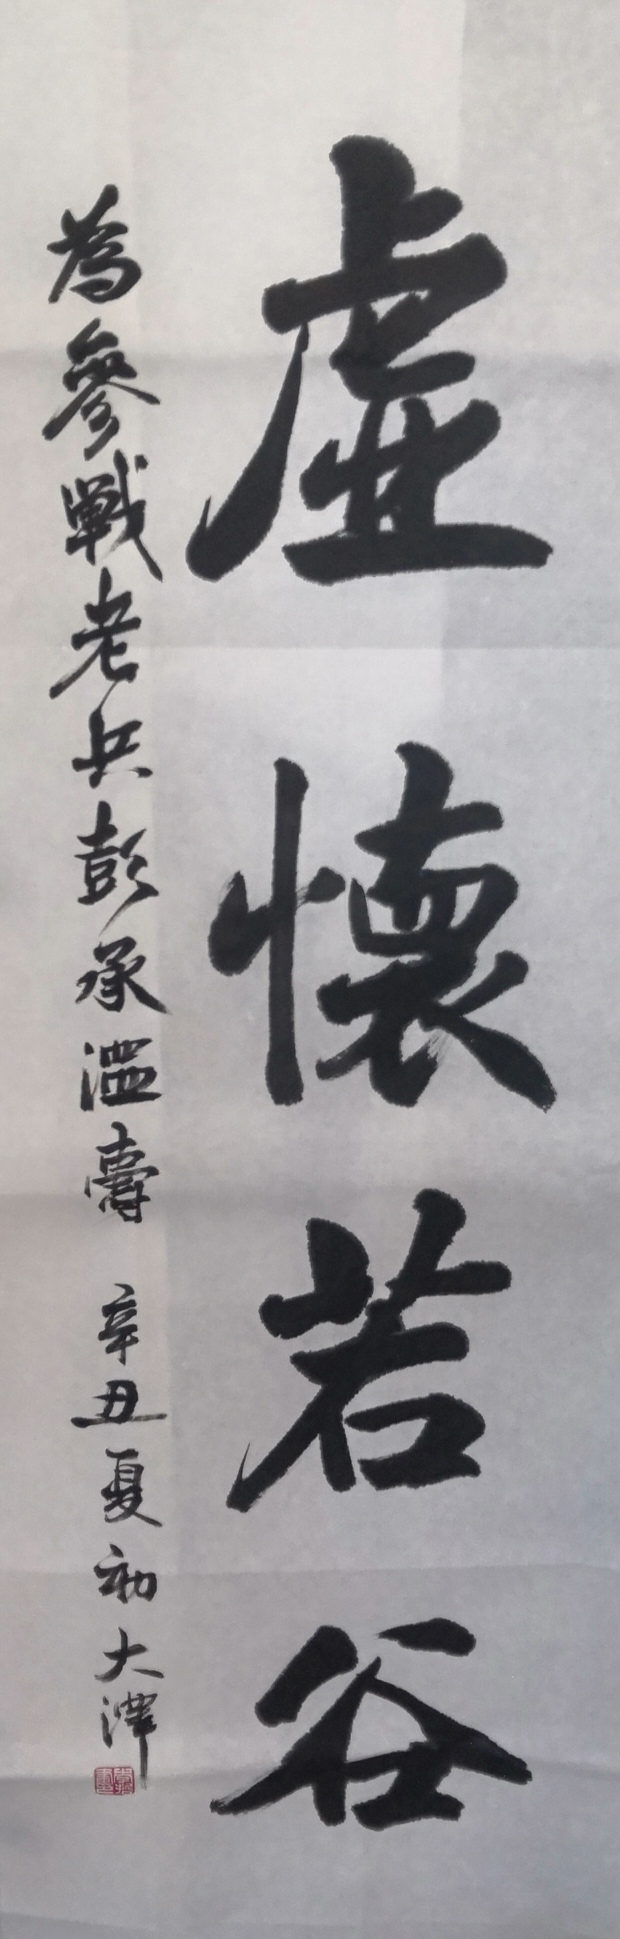 虚懷若谷
為參戰老兵彭承溫壽 辛丑夏初大澤